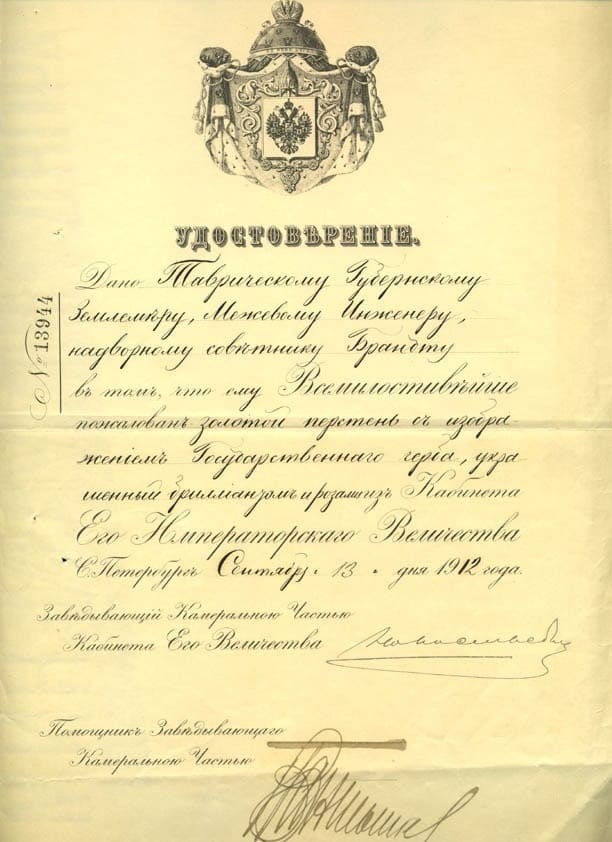 УДОСТОВѢРЕНІЕ.
№ 13944
Дано Таврическому Губернскому
Землемѣру, Межевому Инженеру,
надворному совѣтнику Брандту
въ томъ, что ему Всемилостивѣйше
пожалованъ золотой перстень съ изобра-
женіемъ Государственнаго герба, укра
шенный брилліантомъ и розами изъ Кабинета
Его Императорскаго Величества
С. Петербургъ Сентября 13 дня 1912 года.
Завѣдывающій Камеральною Частью
Кабинета Его Величества
Помощникъ Завѣдывающаго
Камеральною Частью